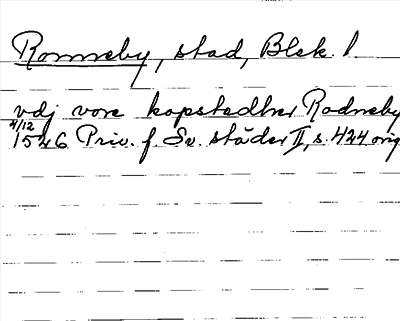 Ronneby, stad, Blek. l
vdj vore köpstedher Rodneby
4/12 1546 Priv. f. Sv. städer II, s. 424 orig